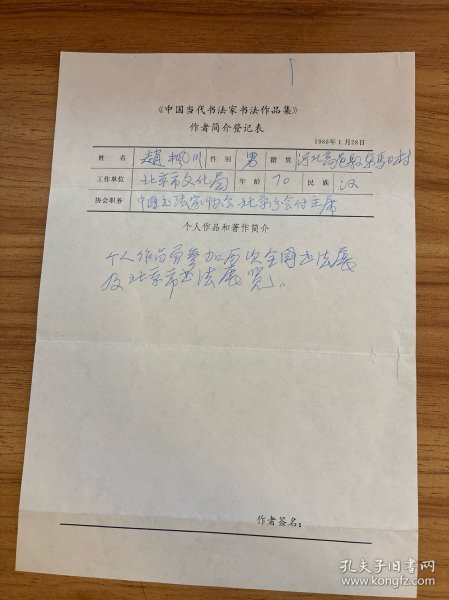 《中国当代书法家书法作品集》
作者简介登记表
1986年1月28日
姓名 趙枫川 性别 男 籍贯 河北高邑县 村
工作单位 北京市文化局 年龄 70 民族 汉
协会职务 中国书法家协会北京分会付主席
个人作品和著作简介
个人作品曾参加两次全国书法展
及北京市书法展览。
作者签名：
孔夫子旧书网
www.kongfz.com